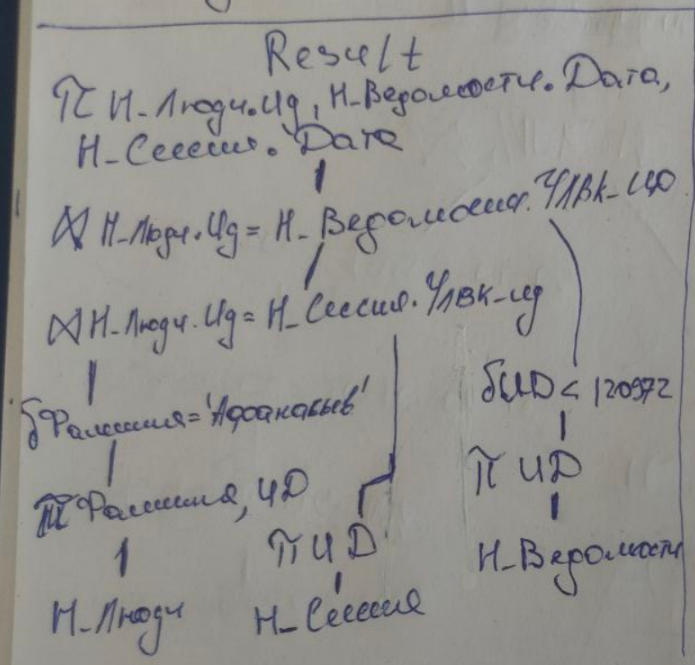 Result
π Н_Люди.ИД, Н_Ведомости.Дата,
Н_Сессия.Дата
⋈ Н_Люди.Ид = Н_Ведомости.ЧЛВК_ИД
⋈ Н_Люди.Ид = Н_Сессия.ЧЛВК_ид
σ Фамилия = 'Афанасьев'
σ ИД < 120972
π Фамилия, ИД
π ИД
π ИД
Н_Люди
Н_Сессия
Н_Ведомости